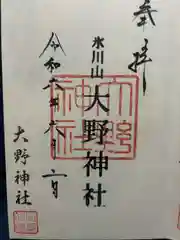 奉拝
氷川山
大野神社
令和六年八月二日
大野神社
大野神社